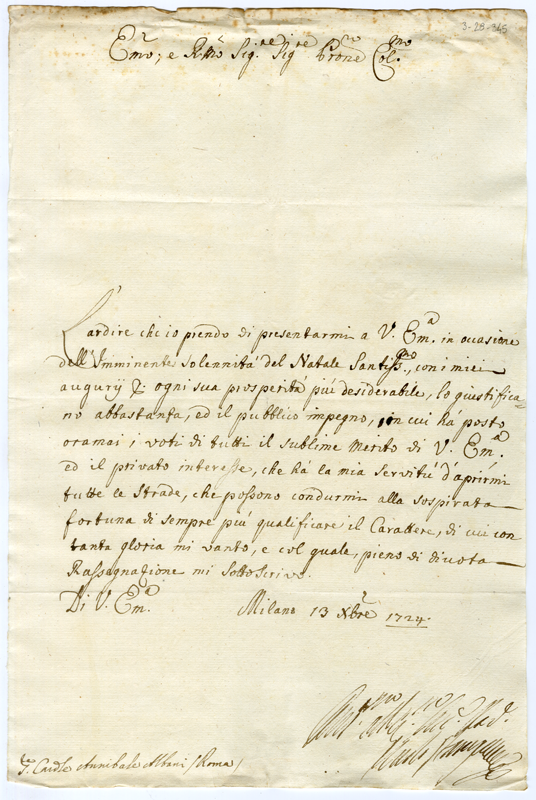 3-28-345
Em.o, e R.mo Sig.re Sig.re Prone Col.mo
L'ardire ch'io prendo di presentarmi a V. Em.a in occasione
dell'Imminente solennità del Natale Santiss.mo, con i miei
augurij di ogni sua prosperità più desiderabile, lo giustifica-
no abbastanza, ed il publico impegno, in cui hà posto
oramai i voti di tutti il sublime Merito di V. Em.a
ed il privato interesse, che hà la mia servitù d'aprirmi
tutte le strade, che possono condurmi alla sospirata
fortuna di sempre più qualificare il Carattere, di cui con
tanta gloria mi vanto, e col quale, pieno di divota
Rassegnazione mi sottoscrivo.
Di V. Em.a Milano 13 Xbre 1724.
S.r Cardle Annibale Albani / Roma /